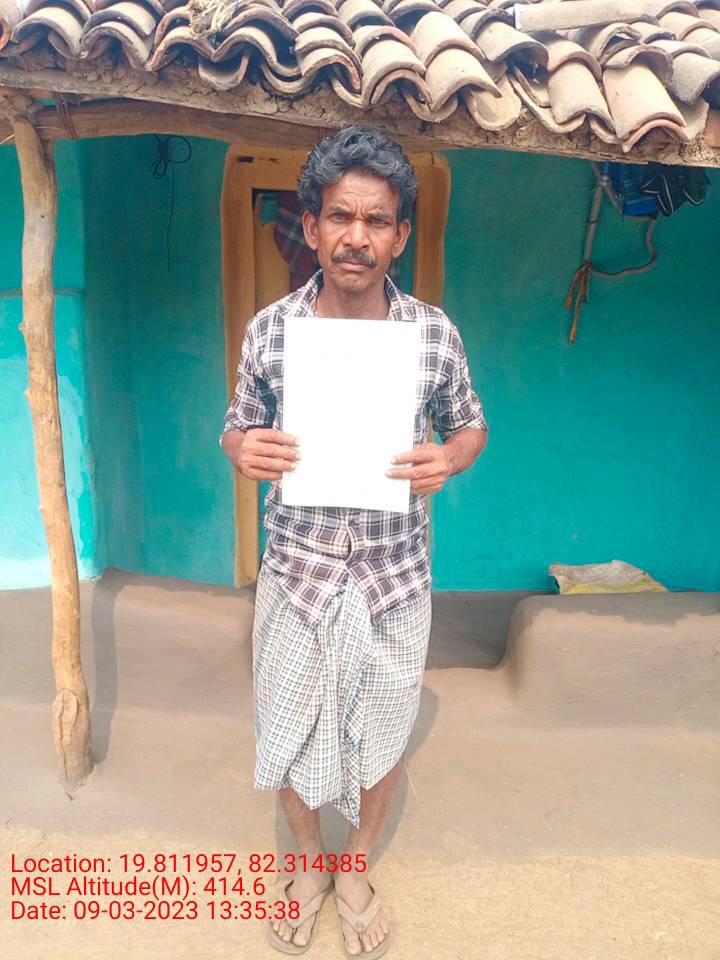 Location: 19.811957, 82.314385
MSL Altitude(M): 414.6
Date: 09-03-2023 13:35:38